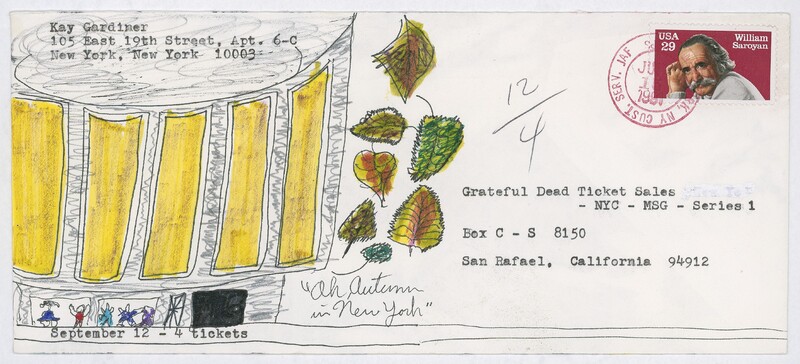 Kay Gardiner
105 East 19th Street, Apt. 6-C
New York, New York 10003
USA
29
William
Saroyan
CUST. SERV. JAF
NY
12/4
Grateful Dead Ticket Sales
- NYC - MSG - Series 1
Box C - S 8150
San Rafael, California 94912
"Oh, Autumn
in New York"
September 12 - 4 tickets